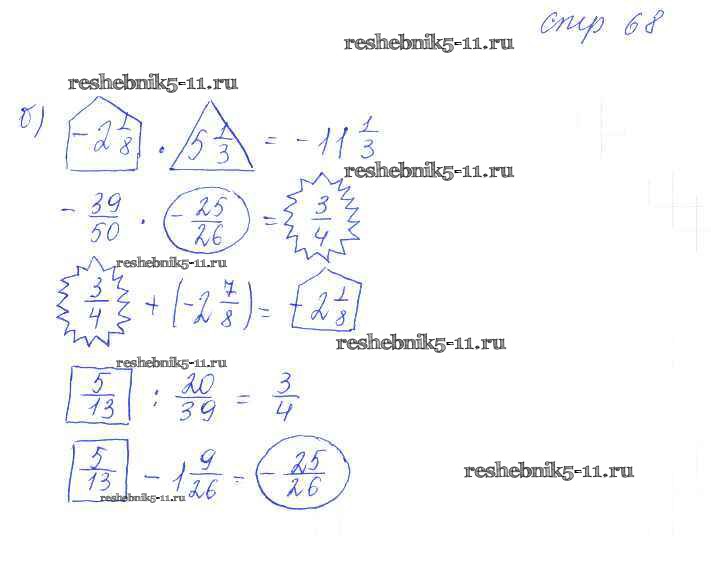 стр 68
reshebnik5-11.ru
reshebnik5-11.ru
б) -2 1/8 · 5 1/3 = -11 1/3
reshebnik5-11.ru
- 39/50 · - 25/26 = 3/4
reshebnik5-11.ru
3/4 + (-2 7/8) = -2 1/8
reshebnik5-11.ru
reshebnik5-11.ru
5/13 : 20/39 = 3/4
5/13 - 1 9/26 = - 25/26
reshebnik5-11.ru
reshebnik5-11.ru